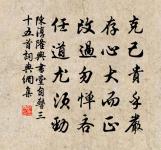 克己貴乎嚴
存心大而正
改過勿憚吝
任道尤須勁
陳淳隆興書堂自警三
十五首詞典網集